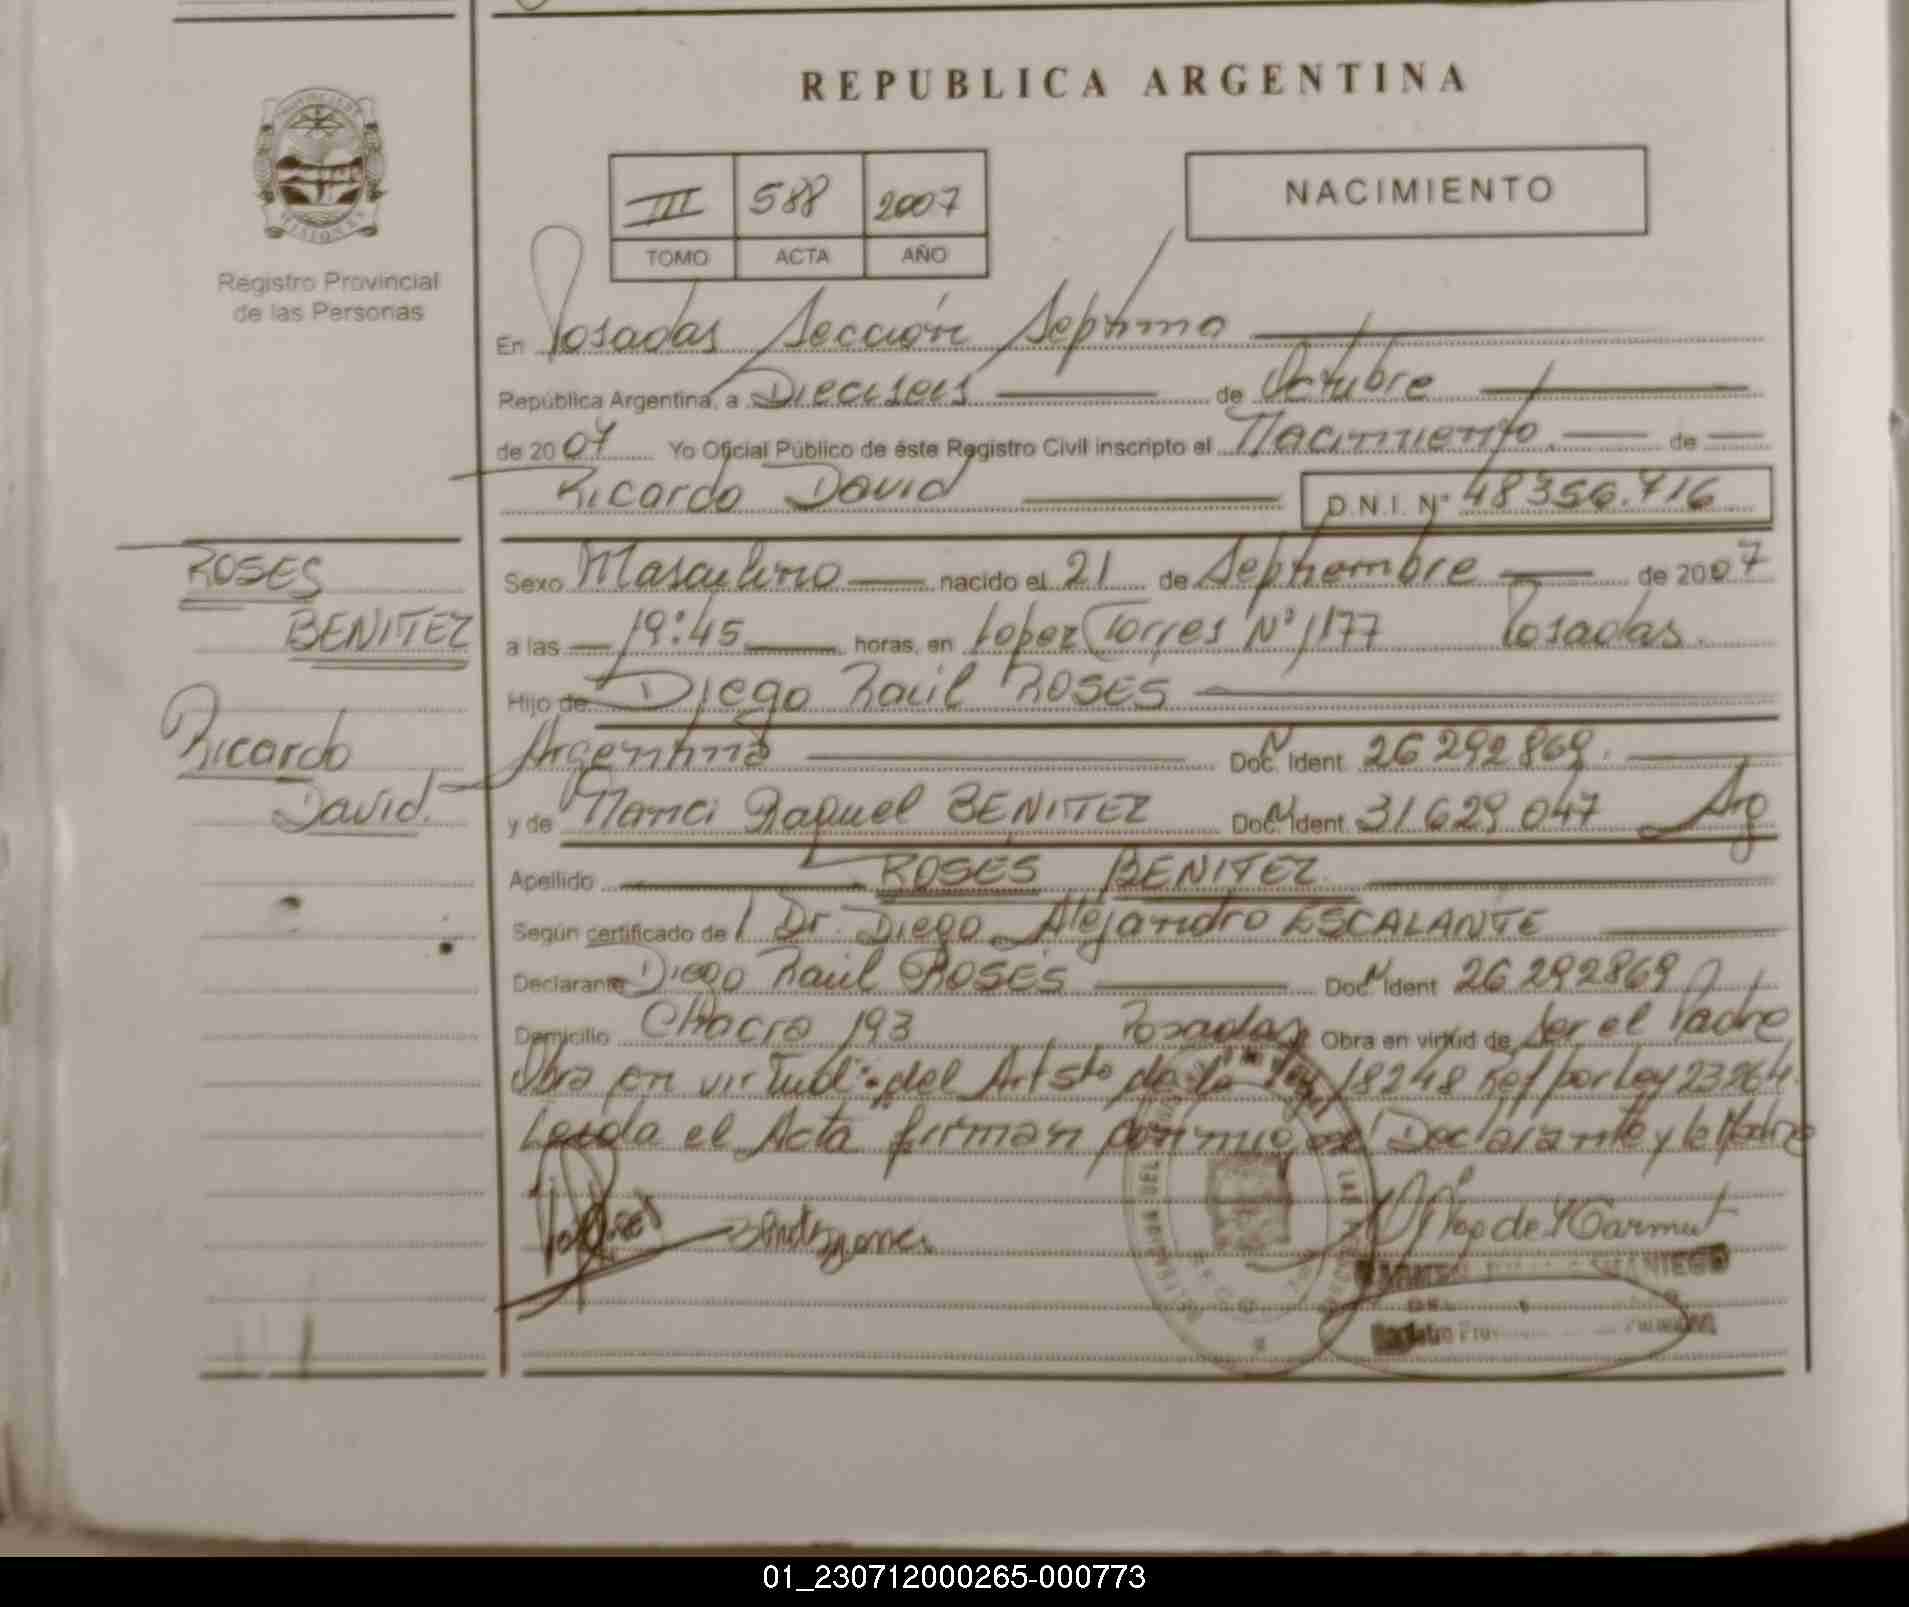 REPUBLICA ARGENTINA
III 588 2007
TOMO ACTA AÑO
NACIMIENTO
Registro Provincial
de las Personas
En Posadas Sección Septima
República Argentina, a Dieciseis de Octubre
de 2007 Yo Oficial Público de éste Registro Civil inscripto el Nacimiento de
Ricardo David D.N.I. Nº 48356.716
ROSES
BENITEZ
Ricardo
David.
Sexo Masculino nacido el 21 de Septiembre de 2007
a las 19:45 horas, en Lopez Torres Nº 1177 Posadas.
Hijo de Diego Raúl ROSES
Argentina Doc. Ident 26 292 869.
y de Nanci Raquel BENITEZ Doc. Ident 31 629 047 Arg
Apellido ROSES BENITEZ
Según certificado de Dr. Diego Alejandro ESCALANTE
Declarante Diego Raúl ROSES Doc. Ident 26 292869
Domicilio Chacra 193 Posadas Obra en virtud de ser el Padre
Obra en virtud del Art 5to de la Ley 18248 Ref por Ley 23264.
Leida el Acta firman el Declarante y la Madre
01_230712000265-000773